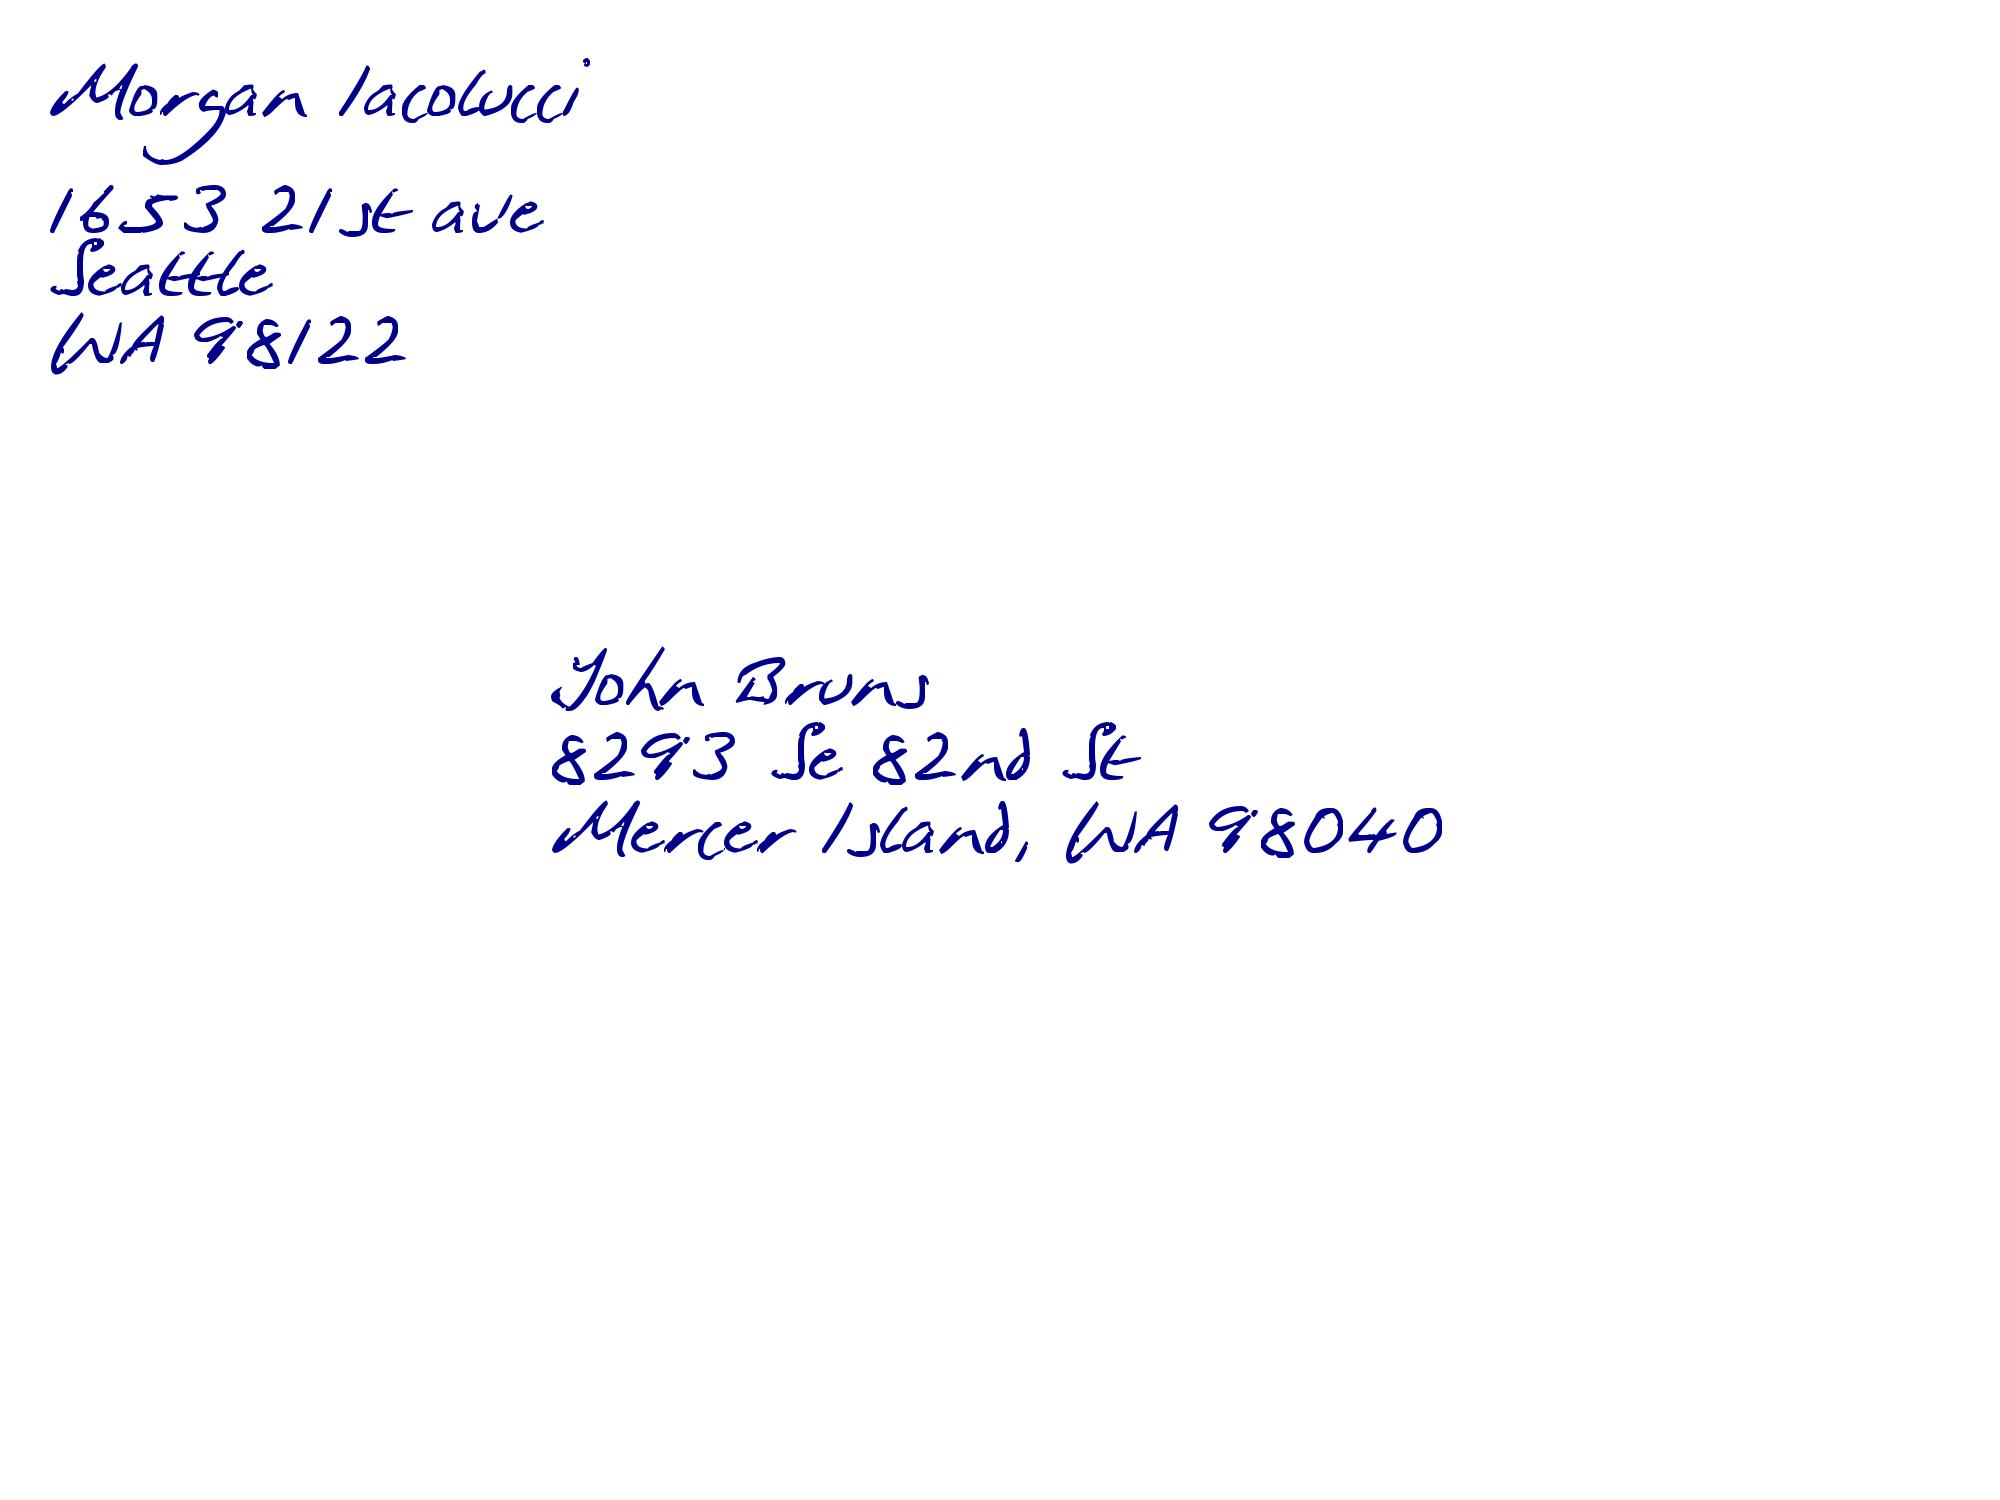 Morgan Iacolucci
1653 21st ave
Seattle
WA 98122
John Bruns
8293 Se 82nd St
Mercer Island, WA 98040